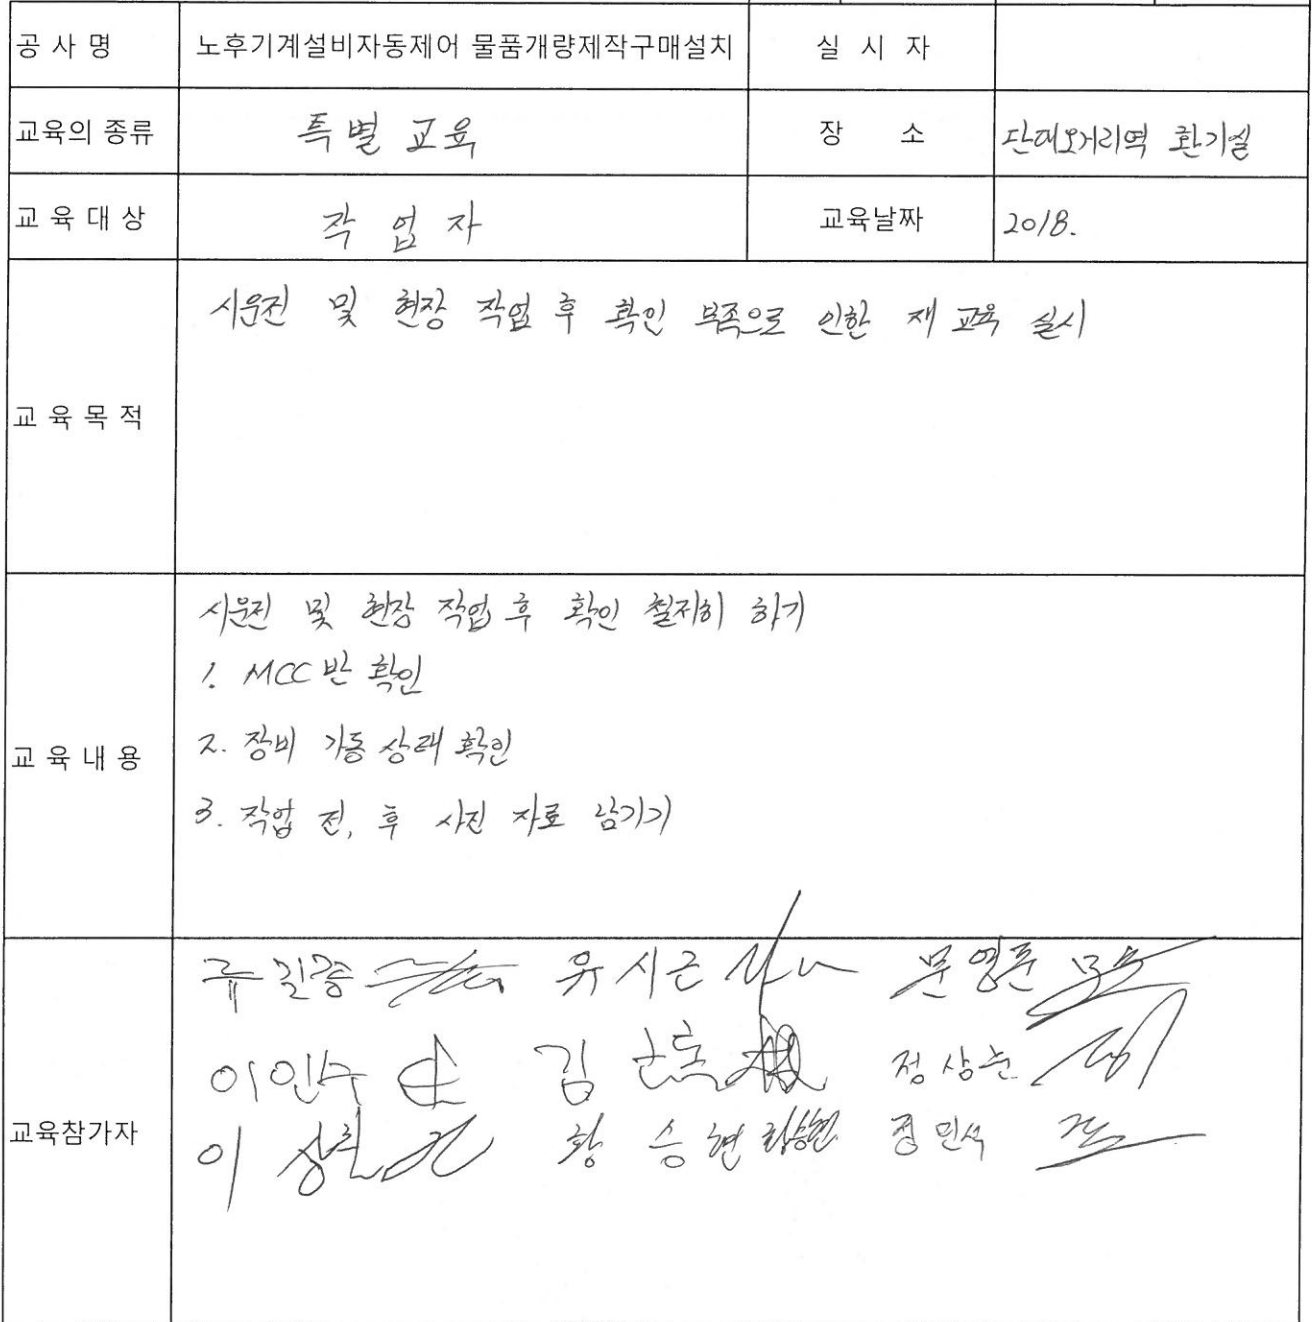 공 사 명 노후기계설비자동제어 물품개량제작구매설치 실 시 자
교육의 종류 특별 교육 장 소 단대오거리역 환기실
교 육 대 상 작 업 자 교육날짜 2018.
교 육 목 적
시운전 및 현장 작업 후 확인 부족으로 인한 재 교육 실시
교 육 내 용
시운전 및 현장 작업 후 확인 철저히 하기
1. MCC 반 확인
2. 장비 가동 상태 확인
3. 작업 전, 후 사진 자료 남기기
교육참가자
유시근 문영준
이인수 김 정상훈
이 황 승 현 황승현 정민석